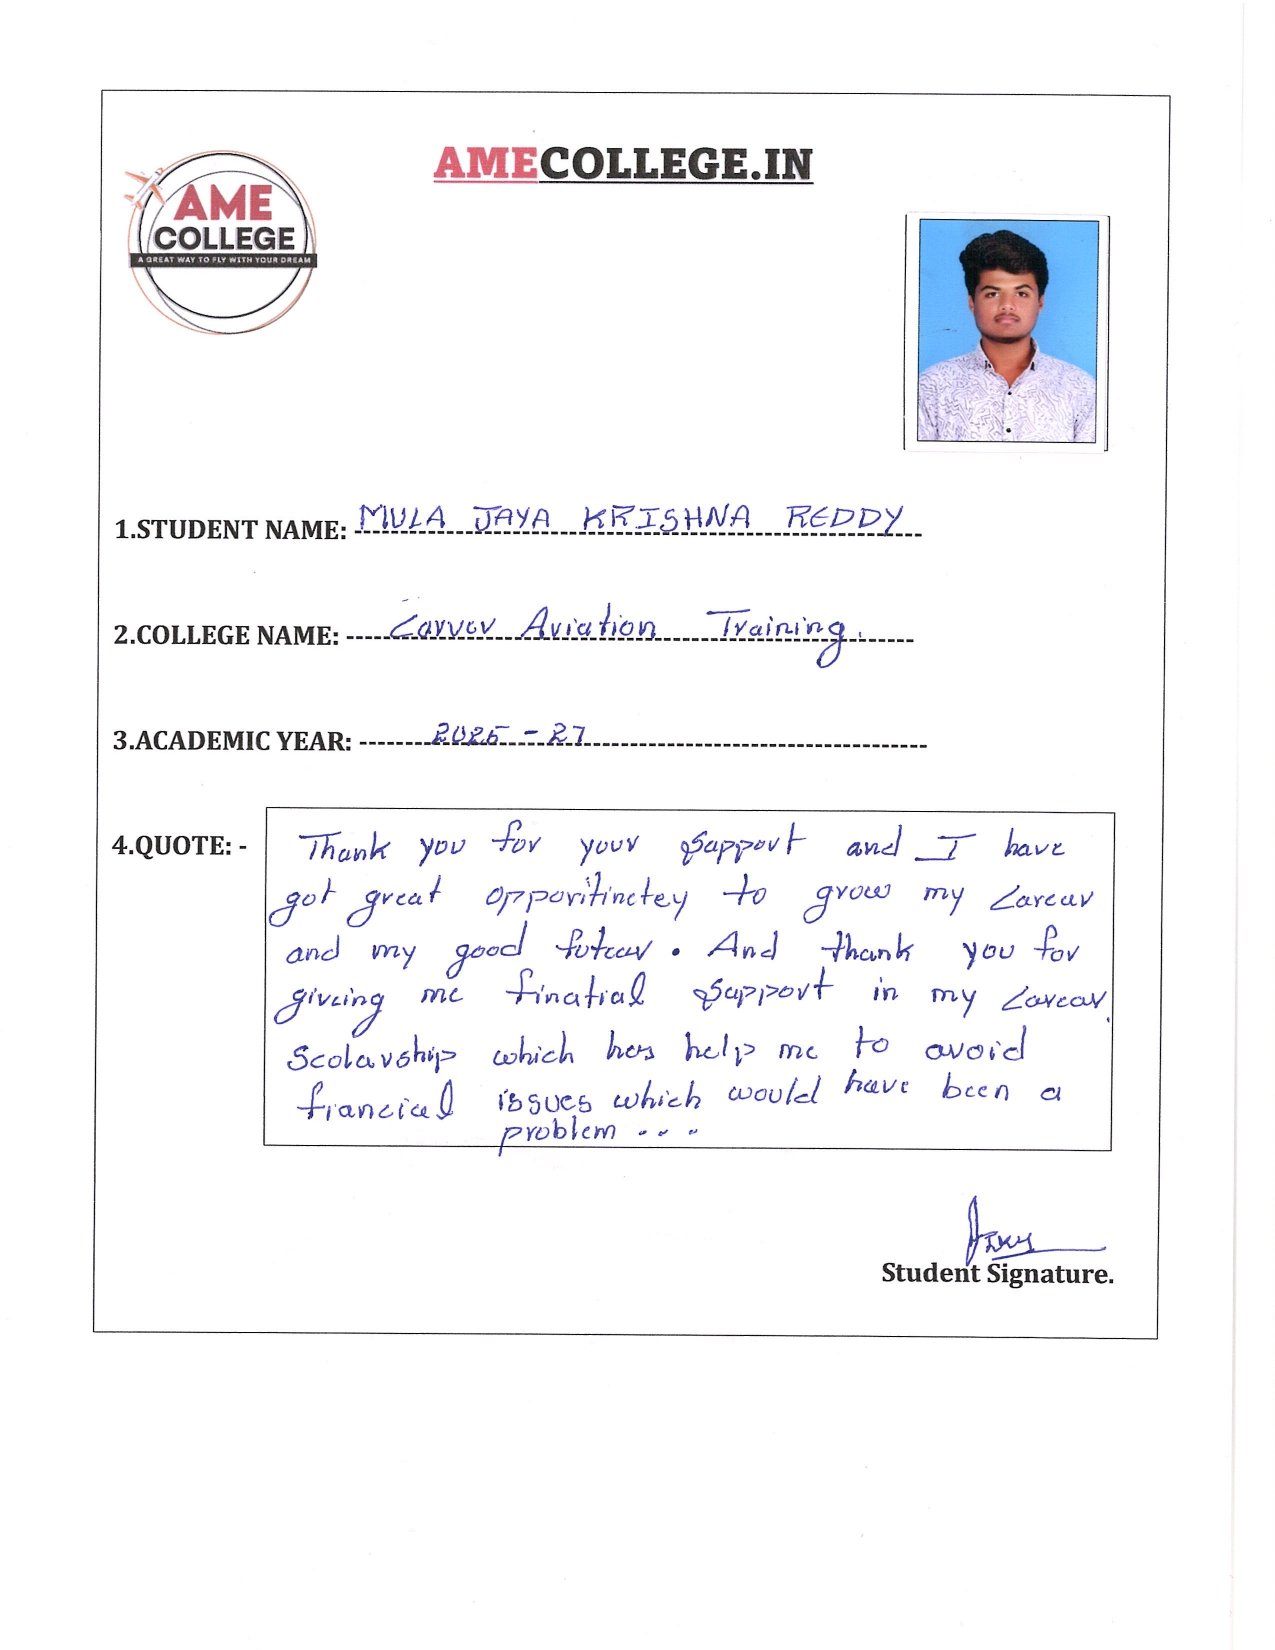 AMECOLLEGE.IN
AME
COLLEGE
A GREAT WAY TO FLY WITH YOUR DREAM
1.STUDENT NAME: MULA JAYA KRISHNA REDDY
2.COLLEGE NAME: Aviation Training.
3.ACADEMIC YEAR: 2025 - 27
4.QUOTE: -
Thank you for your Support and I have
got great opporitinctey to grow my Carear
and my good futcur. And thank you for
giveing me finatial Support in my Carear.
Scolarship which has help me to avoid
francial issues which would have been a
problem ...
Student Signature.